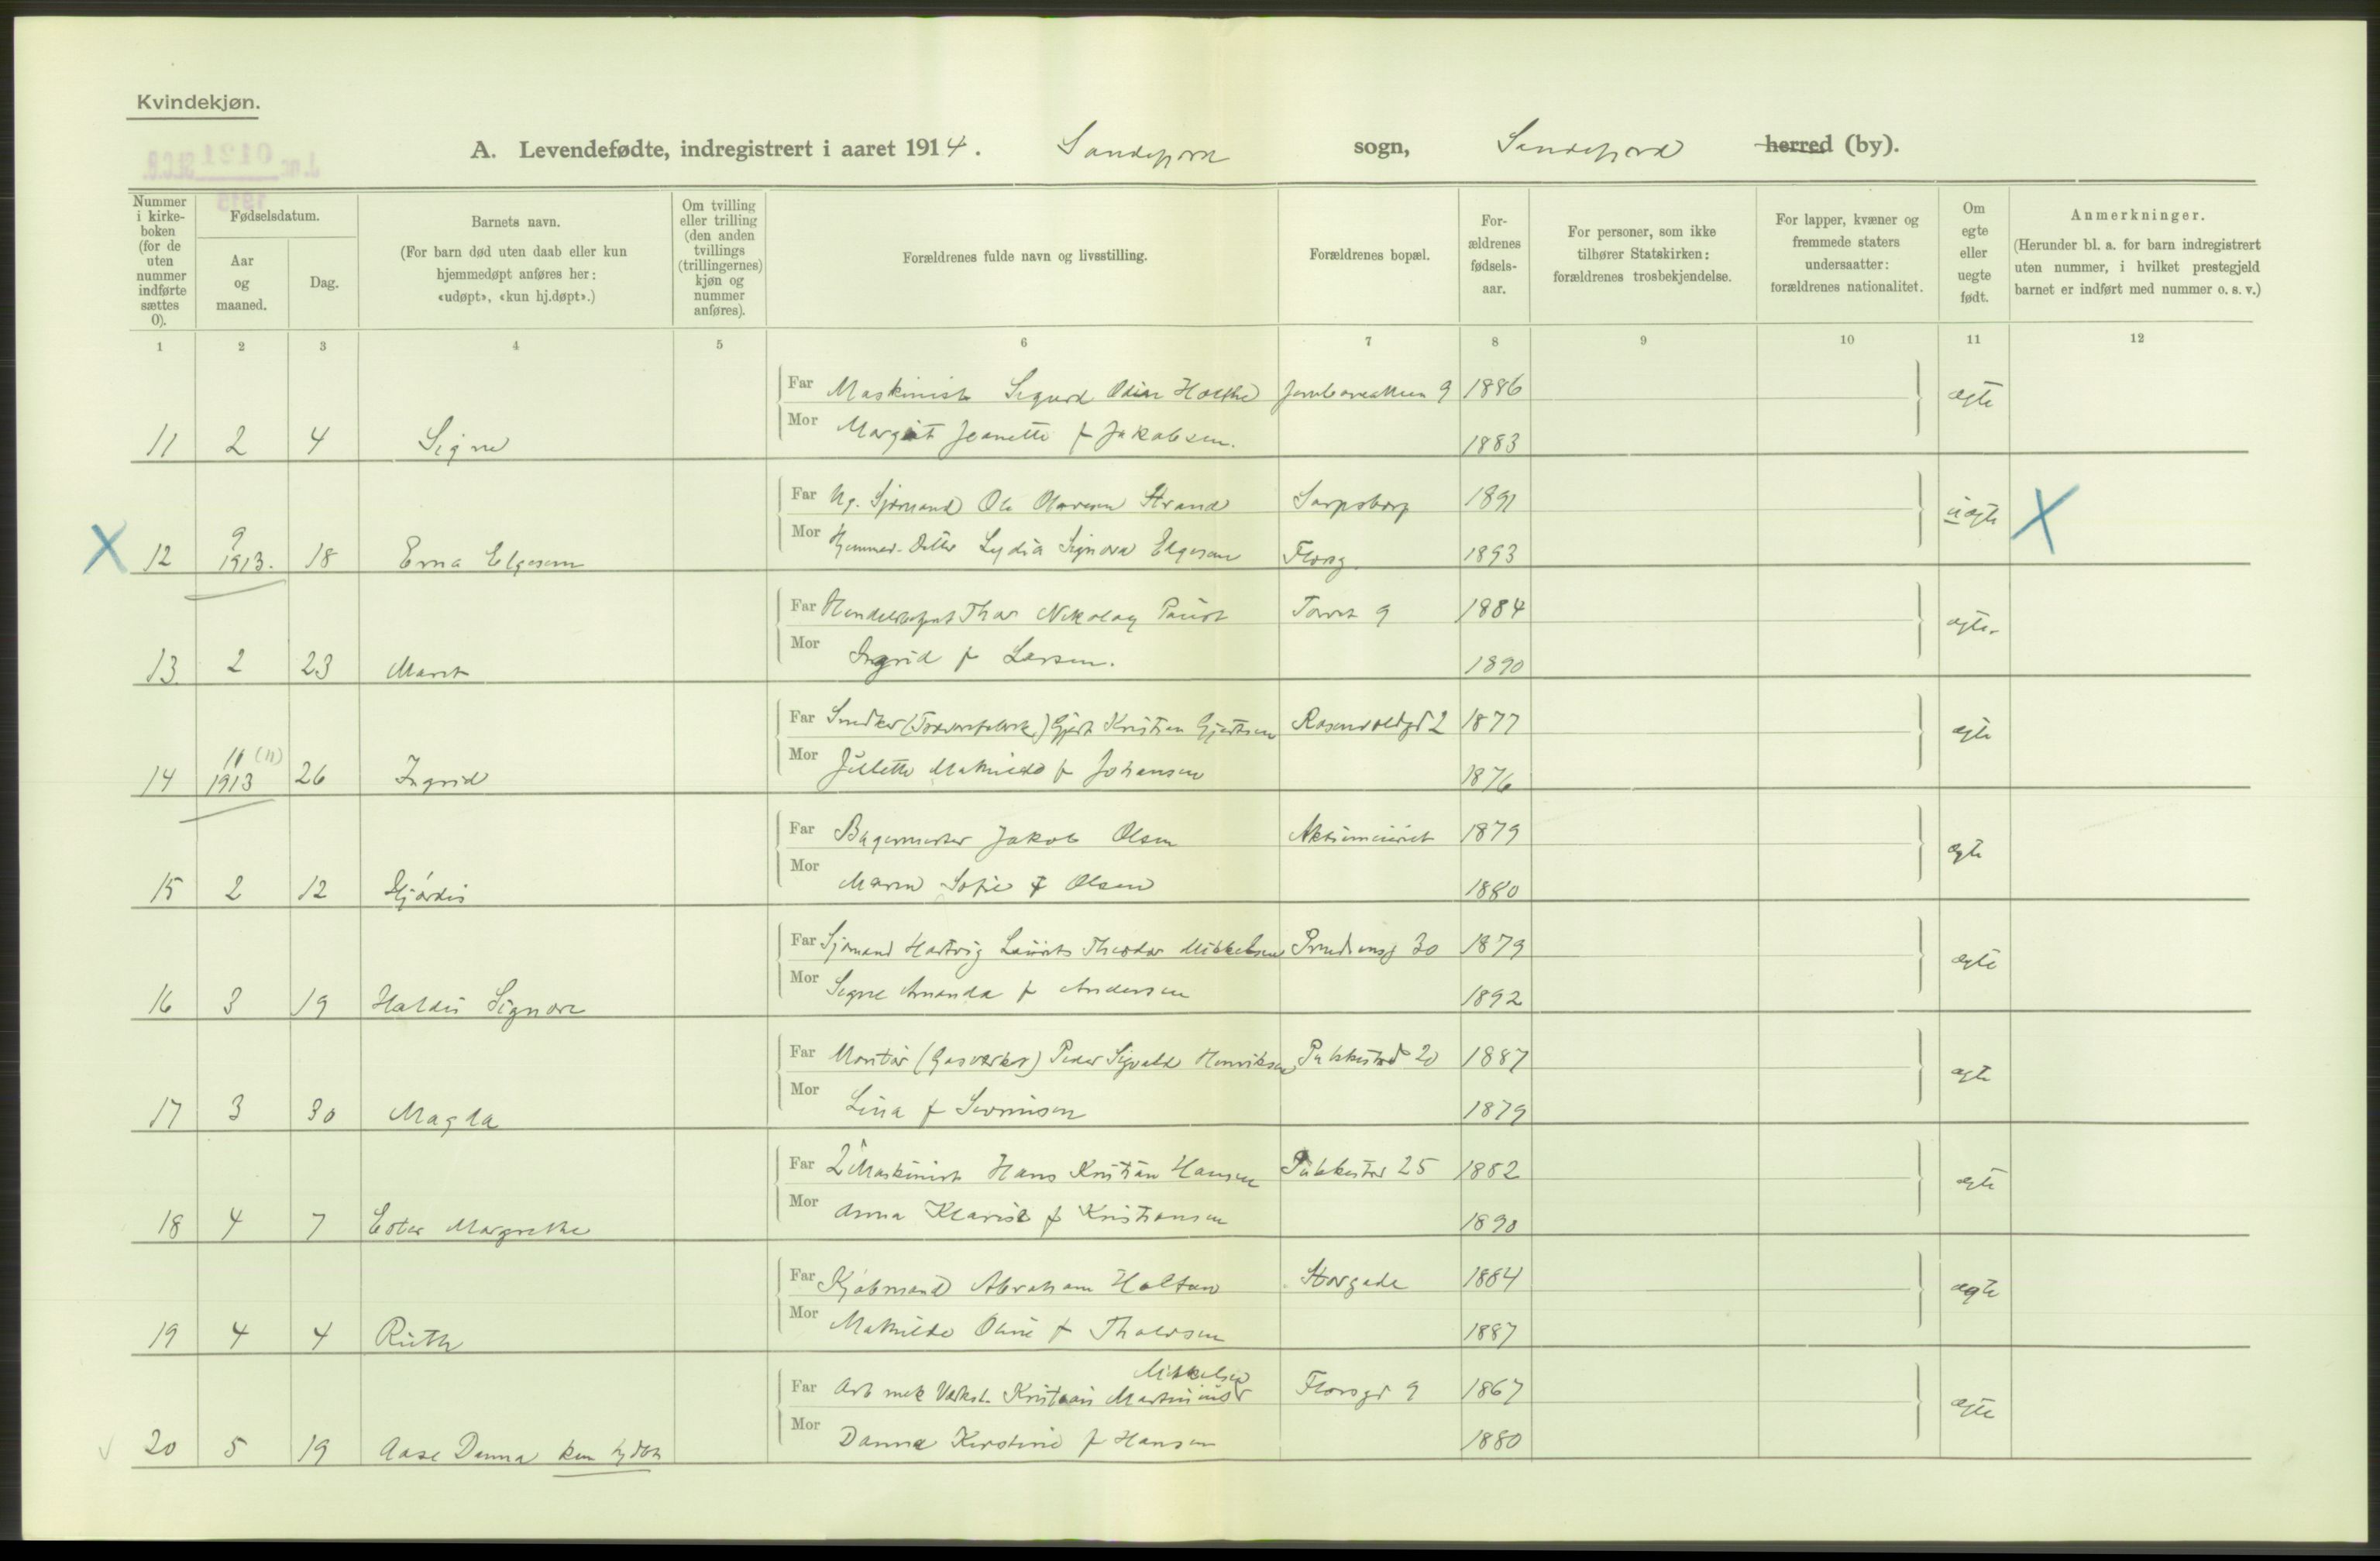 Kvindekjøn.
A. Levendefødte, indregistrert i aaret 1914. Sandefjord sogn, Sandefjord herred (by).
Nummer i kirke- boken (for de uten nummer indførte sættes 0).
Fødselsdatum.
Aar og maaned.
Dag.
Barnets navn.
(For barn død uten daab eller kun hjemmedøpt anføres her: «udøpt», «kun hj.døpt».)
Om tvilling eller trilling (den anden tvillings (trillingernes) kjøn og nummer anføres).
Forældrenes fulde navn og livsstilling.
Forældrenes bopæl.
For- ældrenes fødsels- aar.
For personer, som ikke tilhører Statskirken: forældrenes trosbekjendelse.
For lapper, kvæner og fremmede staters undersaatter: forældrenes nationalitet.
Om egte eller uegte født.
Anmerkninger.
(Herunder bl. a. for barn indregistrert uten nummer, i hvilket prestegjeld barnet er indført med nummer o. s. v.)
1 2 3 4 5 6 7 8 9 10 11 12
Far Maskinist Sigurd Odin Holthe 9 1886 ægte
11 2 4 Signe Mor Margit Jeanette f Jakobsen. 1883
Far Ug. Sjømand Ole Olavesen Strand Sarpsborg 1891 uægte X
X 12 9 1913. 18 Erna Elgesem Mor Hjemmev. Datter Lydia Signora Elgesem Florsg. 1893
Far Handelsagent Thor Nikolay Torvet 9 1884 ægte.
13 2 23 Marit Mor Ingrid f Larsen. 1890
Far Snedker Gjert Kristian Gjertsen Rosenvoldgd 2 1877 ægte
14 11 (11) 1913 26 Ingrid Mor Julette Mathilde f Johansen 1876
Far Bagermester Jakob Olsen Aktiemeieriet 1879 ægte
15 2 12 Hjördis Mor Maren Sofie f Olsen 1880
Far Sjömand Hartvig Laurits Theodor Mikkelsen 30 1879 ægte
16 3 19 Haldis Signora Mor Signe Amanda f Andersen 1892
Far Montör (Gasverket) Peder Sigvald Henriksen Pukkestad 20 1887 ægte
17 3 30 Magda Mor Lina f 1879
Far 2 Maskinist Hans Kristian Hansen Pukkestad 25 1882 ægte
18 4 7 Ester Margrethe Mor Anna Klarise f Kristiansen 1890
Far Kjöbmand Abraham Holtan Storgade 1884 ægte
19 4 4 Ruth Mor Mathilde Oline f 1887
Mikkelsen
Far Arb mek Værkst. Kristian Martinius Florsgd 9 1867 ægte
20 5 19 Aase Danna kun hj döbt Mor Danna Kirstine f Hansen 1880